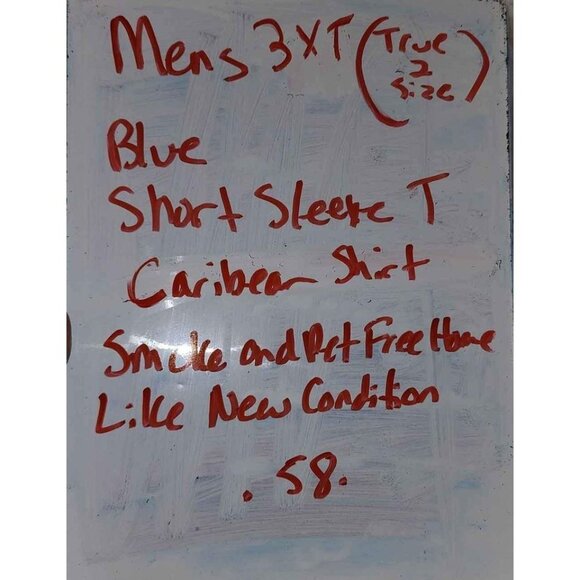 Mens 3XT (True 2 Size)
Blue
Short Sleeve T
Caribean Shirt
Smoke and Pet Free Home
Like New Condition
. 58.